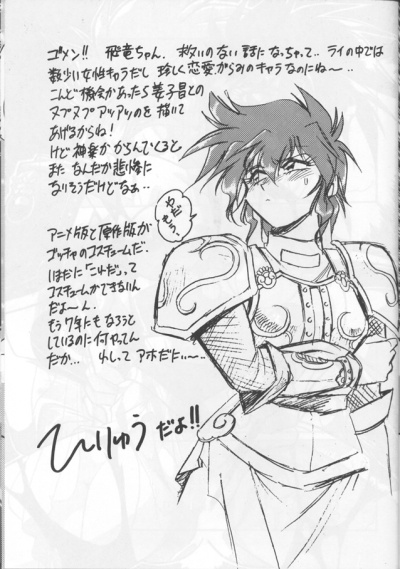 ゴメン!! 飛竜ちゃん、救いのない話になっちゃって‥ライの中では
数少い女性キャラだし珍しく恋愛がらみのキャラなのにね〜‥
こんど機会があったら姜子昌との
ヌプヌプアツアツのを描いて
あげるからね!
けど神楽がからんでくると
また なんだか悲惨に
なりそうだけどなぁ‥
アニメ版と原作版が
ゴッチャのコスチュームだ。
いまだに「これだ」って
コスチュームができないん
だよ〜ん。
もう7年にもなろうと
しているのに何やってん
だか‥
ひりゅう だよ!!